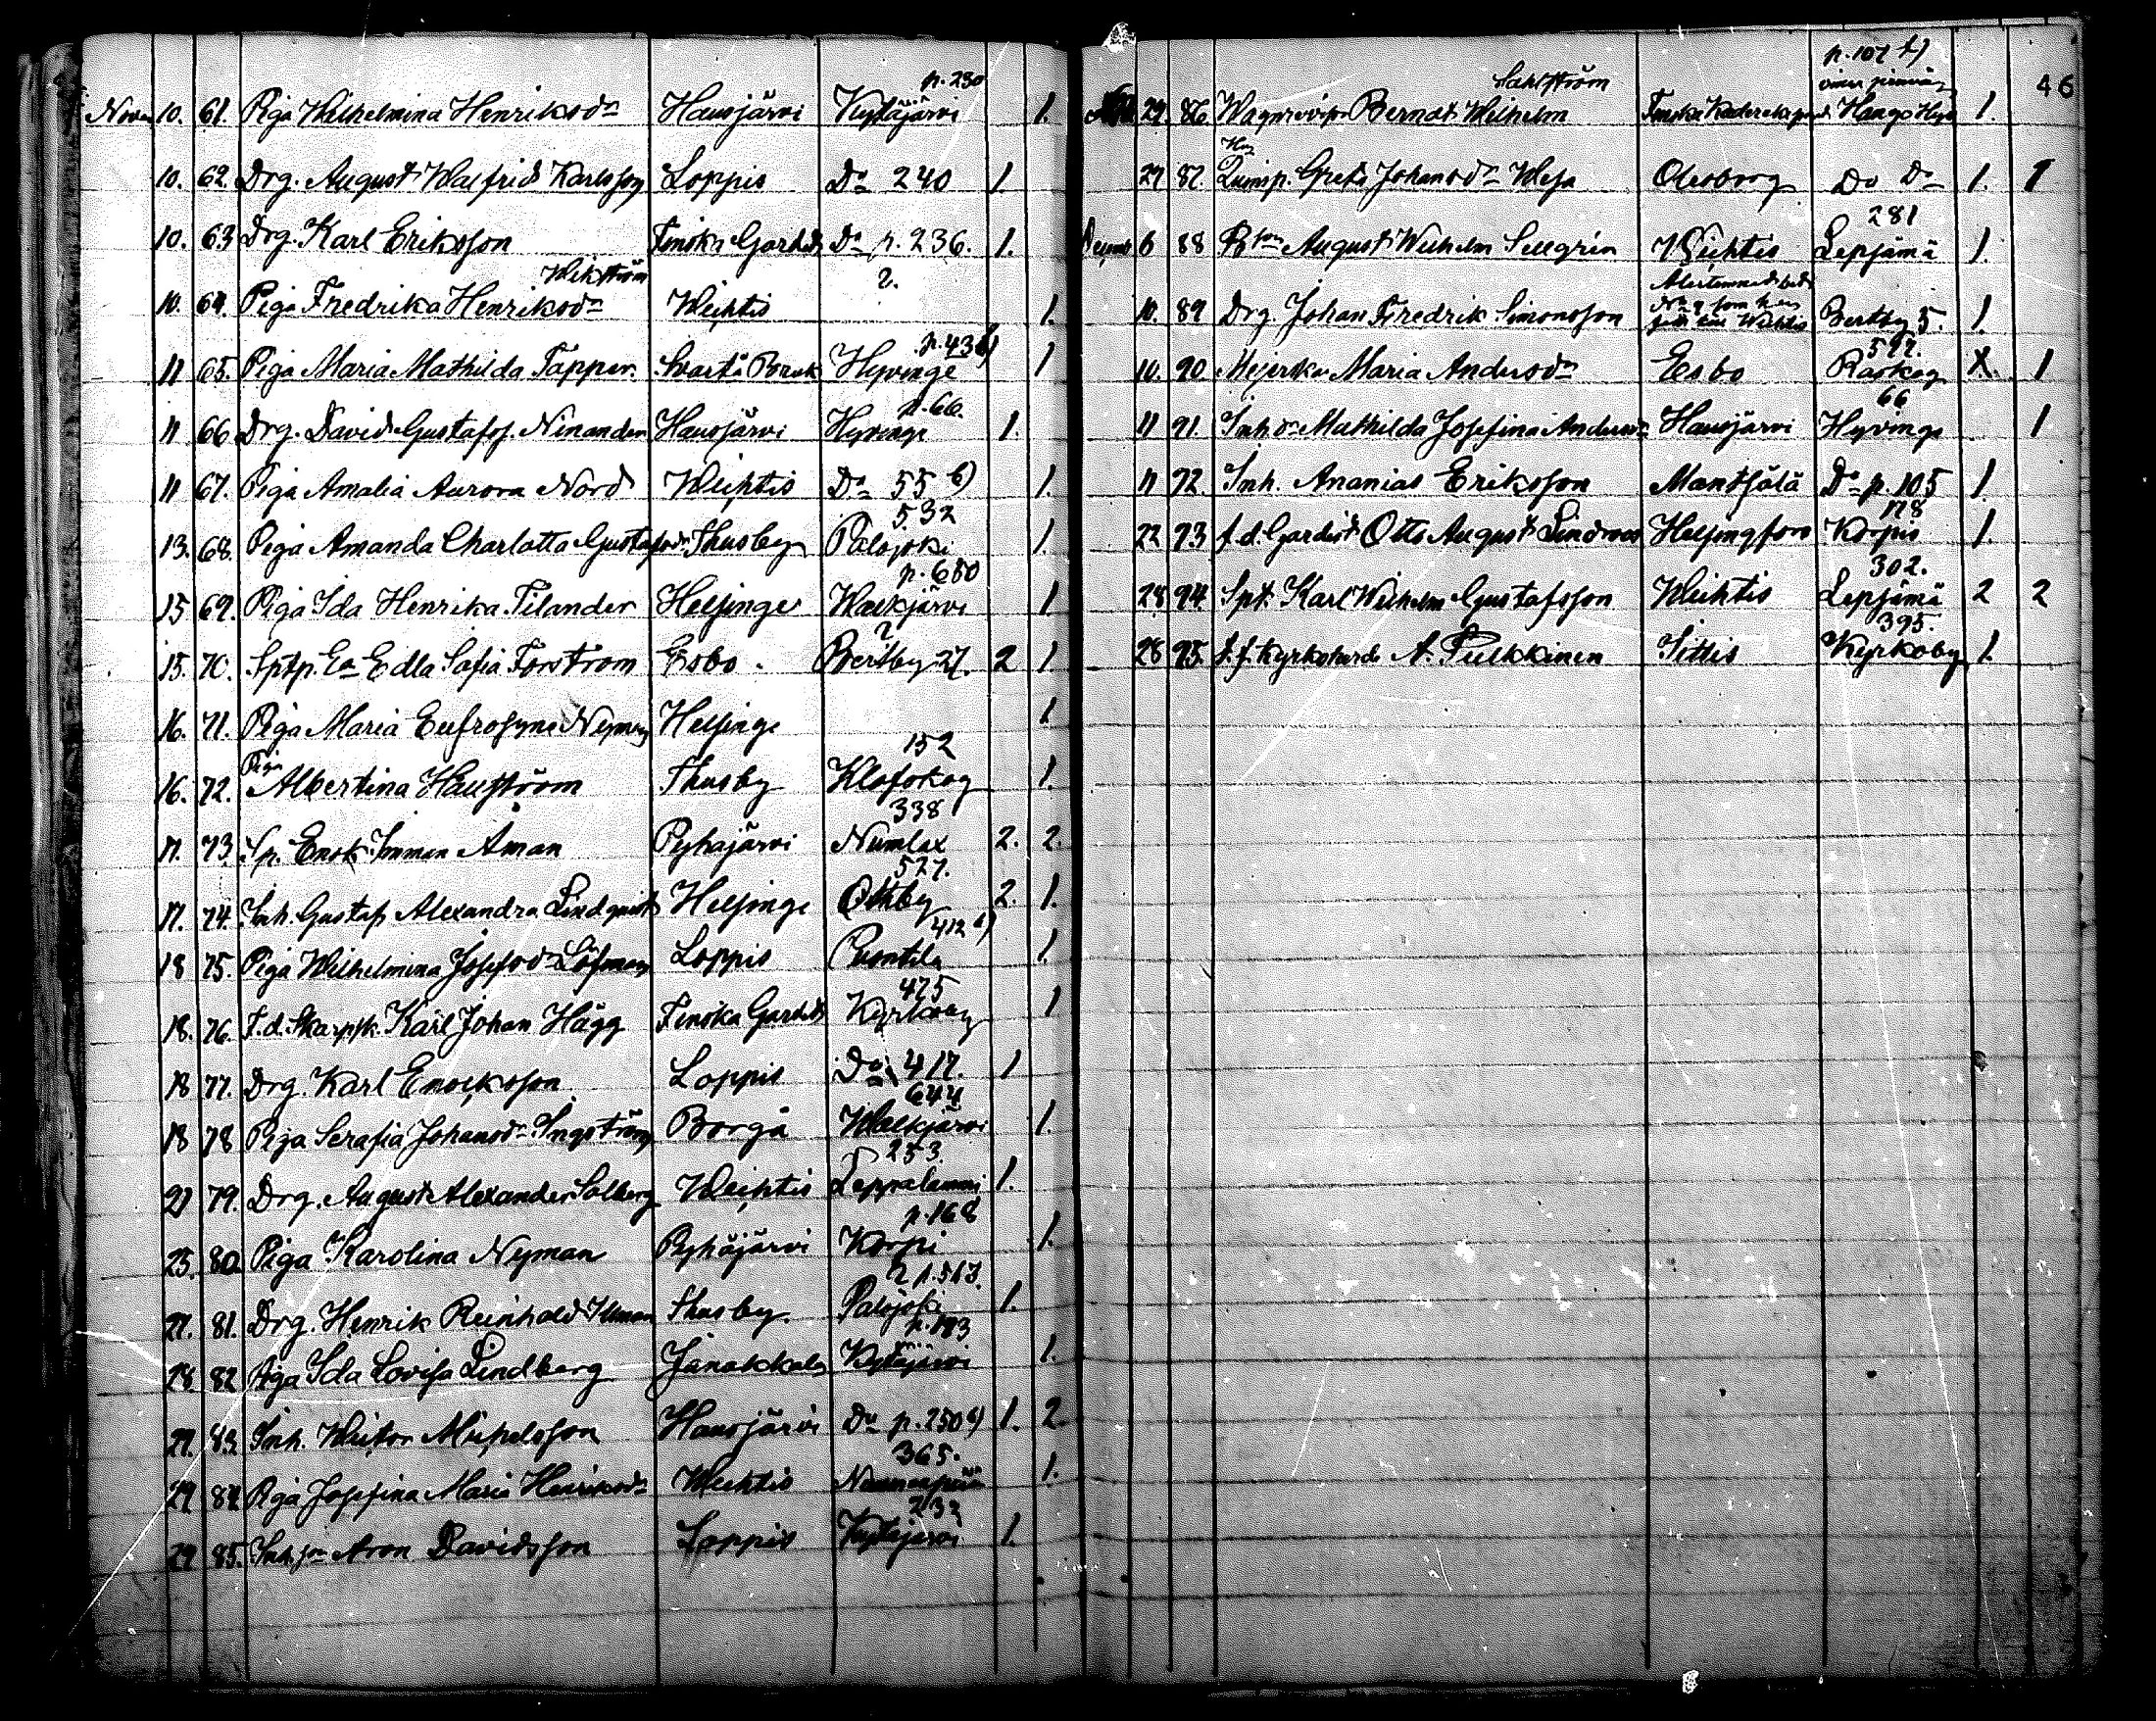 p. 230
Novem 10. 61. Piga Wilhelmina Henriksdr Hausjärvi Kytäjärvi 1.
10. 62. Drg. August Walfrid Karlsson Loppis Do 240 1.
10. 63 Drg. Karl Eriksson Finska Gardet Do p. 236. 1.
Wikström 2.
10. 64. Piga Fredrika Henriksdr Wichtis 1.
p. 436)
11 65. Piga Maria Mathilda Tapper. Svartå Bruk Hyvinge 1
p. 66.
11 66 Drg. David Gustafss. Ninander Hausjärvi Hyvinge 1.
11 67. Piga Amalia Aurora Nord Wichtis Do 55 b) 1.
532
13. 68. Piga Amanda Charlotta Gustafsdr Thusby Palojoki 1.
p. 680
15 69. Piga Ida Henrika Tilander Helsinge Walkjärvi 1
2
15. 70. Sptp. Ea Edla Sofia Forström Esbo. Bertby 27. 2 1.
16. 71. Piga Maria Eufrosyne Nyman Helsinge 1
Piga 152
16. 72. Albertina Hauström Thusby Klofskog 1.
338
17. 73. Sp. Enok Imman Åman Pyhäjärvi Numlax 2. 2.
527.
17. 74. Inh. Gustaf Alexandra Lindqvist Helsinge Ottby 2. 1.
412 b)
18 75. Piga Wilhelmina Josefsdr Löfman Loppis Puontila 1
475
18. 76. F.d. Skarpsk. Karl Johan Hägg Finska Gardet Kyrkoby 1
18 77. Drg. Karl Enoksson Loppis Do 417. 1
644
18 78 Piga Serafia Johansdr Ingström Borgå Walkjärvi 1.
253.
21 79. Drg. August Alexander Salberg Wichtis Leppelammi 1.
p. 168
25. 80. Piga Karolina Nyman Pyhäjärvi Korpi 1.
2 p. 513.
27. 81. Drg. Henrik Reinhold Thusby. Palojoki 1.
p. 183
28 82 Piga Ida Lovisa Lindberg Janakkala Kytäjärvi 1.
29. 83. Inh. Wiktor Mikelsson Hausjärvi Do p. 250 b) 1. 2.
365.
29 84. Piga Josefina Maria Henriksdr Wichtis 1.
232
29 85. Inh. son Aron Davidsson Loppis Kytäjärvi 1.
p. 107 b)
Sahlström 46
29. 86 Berndt Wilhelm Finska Hangö Hyv 1.
27 87. Greta Johansdr Weja Uleåborg Do Do 1. 1
281
Decemb 6 88 August Wilhelm Sellgrén Wichtis Lepsämä 1.
10. 89 Drg. Johan Fredrik Simonsson Wichtis Bertby 5. 1.
597.
10. 90. Mejerska Maria Andersdr Esbo Råskog X. 1
66
11 91. Inh. dr Mathilda Josefina Andersdr Hausjärvi Hyvinge 1
11 92. Inh. Ananias Eriksson Mäntsälä Do p. 105 1.
178
22 93 f.d. Gardist Otto August Lindroos Helsingfors Korpis 1.
302.
28 94. Spt. Karl Wilhelm Gustafsson Wichtis Lepsämä 2 2
395.
28 95. A. Pulkkinen Sittis Kyrkoby 1.